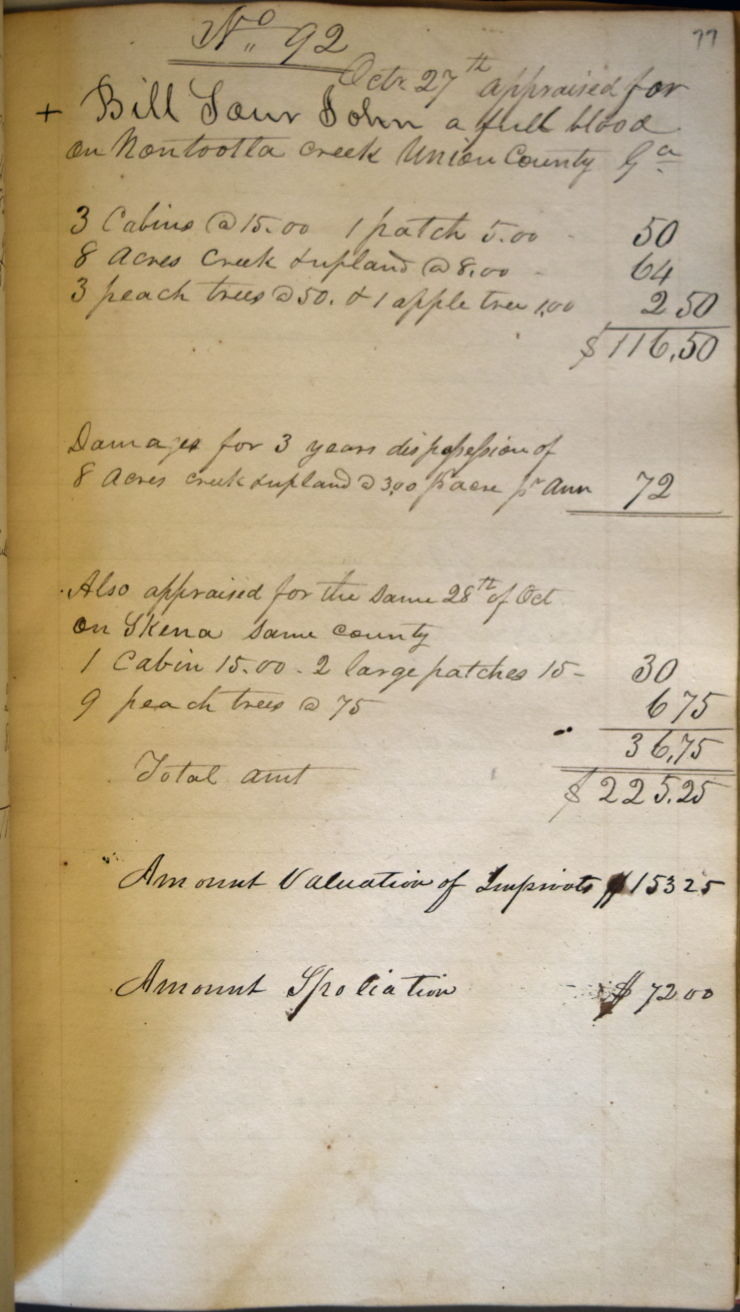 77
No 92
Octr 27th appraised for
+ Bill Sour John a full blood
on Nontootla creek Union County Ga
3 Cabins @ 15.00 1 patch 5.00 - 50
8 Acres Creek & upland @ 8.00 - 64
3 peach trees @ 50. & 1 apple tree 1,00 2 50
$116,50
Damages for 3 years dispossession of
8 Acres creek & upland @ 3,00 pr acre pr Ann 72
Also appraised for the same 28th of Oct
on Skena same county
1 Cabin 15.00 - 2 large patches 15 - 30
9 peach trees @ 75 6 75
36,75
Total amt $225.25
Amount Valuation of Improvts $153 25
Amount Spoliation $72 00